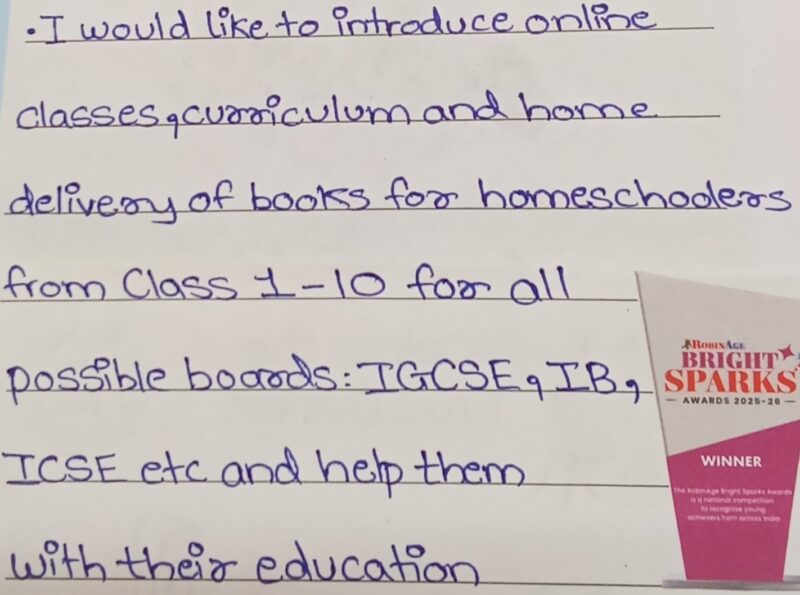 • I would like to introduce online
classes, curriculum and home
delivery of books for homeschoolers
from Class 1-10 for all
possible boards: IGCSE, IB,
ICSE etc and help them
with their education
ROBINAGE
BRIGHT
SPARKS
— AWARDS 2025-26 —
WINNER
The RobinAge Bright Sparks Awards
is a national competition
to recognise young
achievers from across India